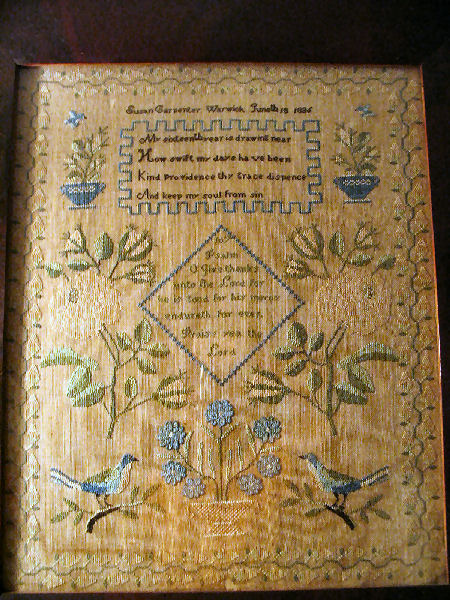 Susan Carpenter Warwick June th 18 1836
My sixteenth year is drawing near
How swift my days have been
Kind Providence thy Grace dispence
And keep my soul from sin
Psalm
O Give thanks
unto the Lord for
he is good for his mercy
endureth for ever.
Praise yea the
Lord